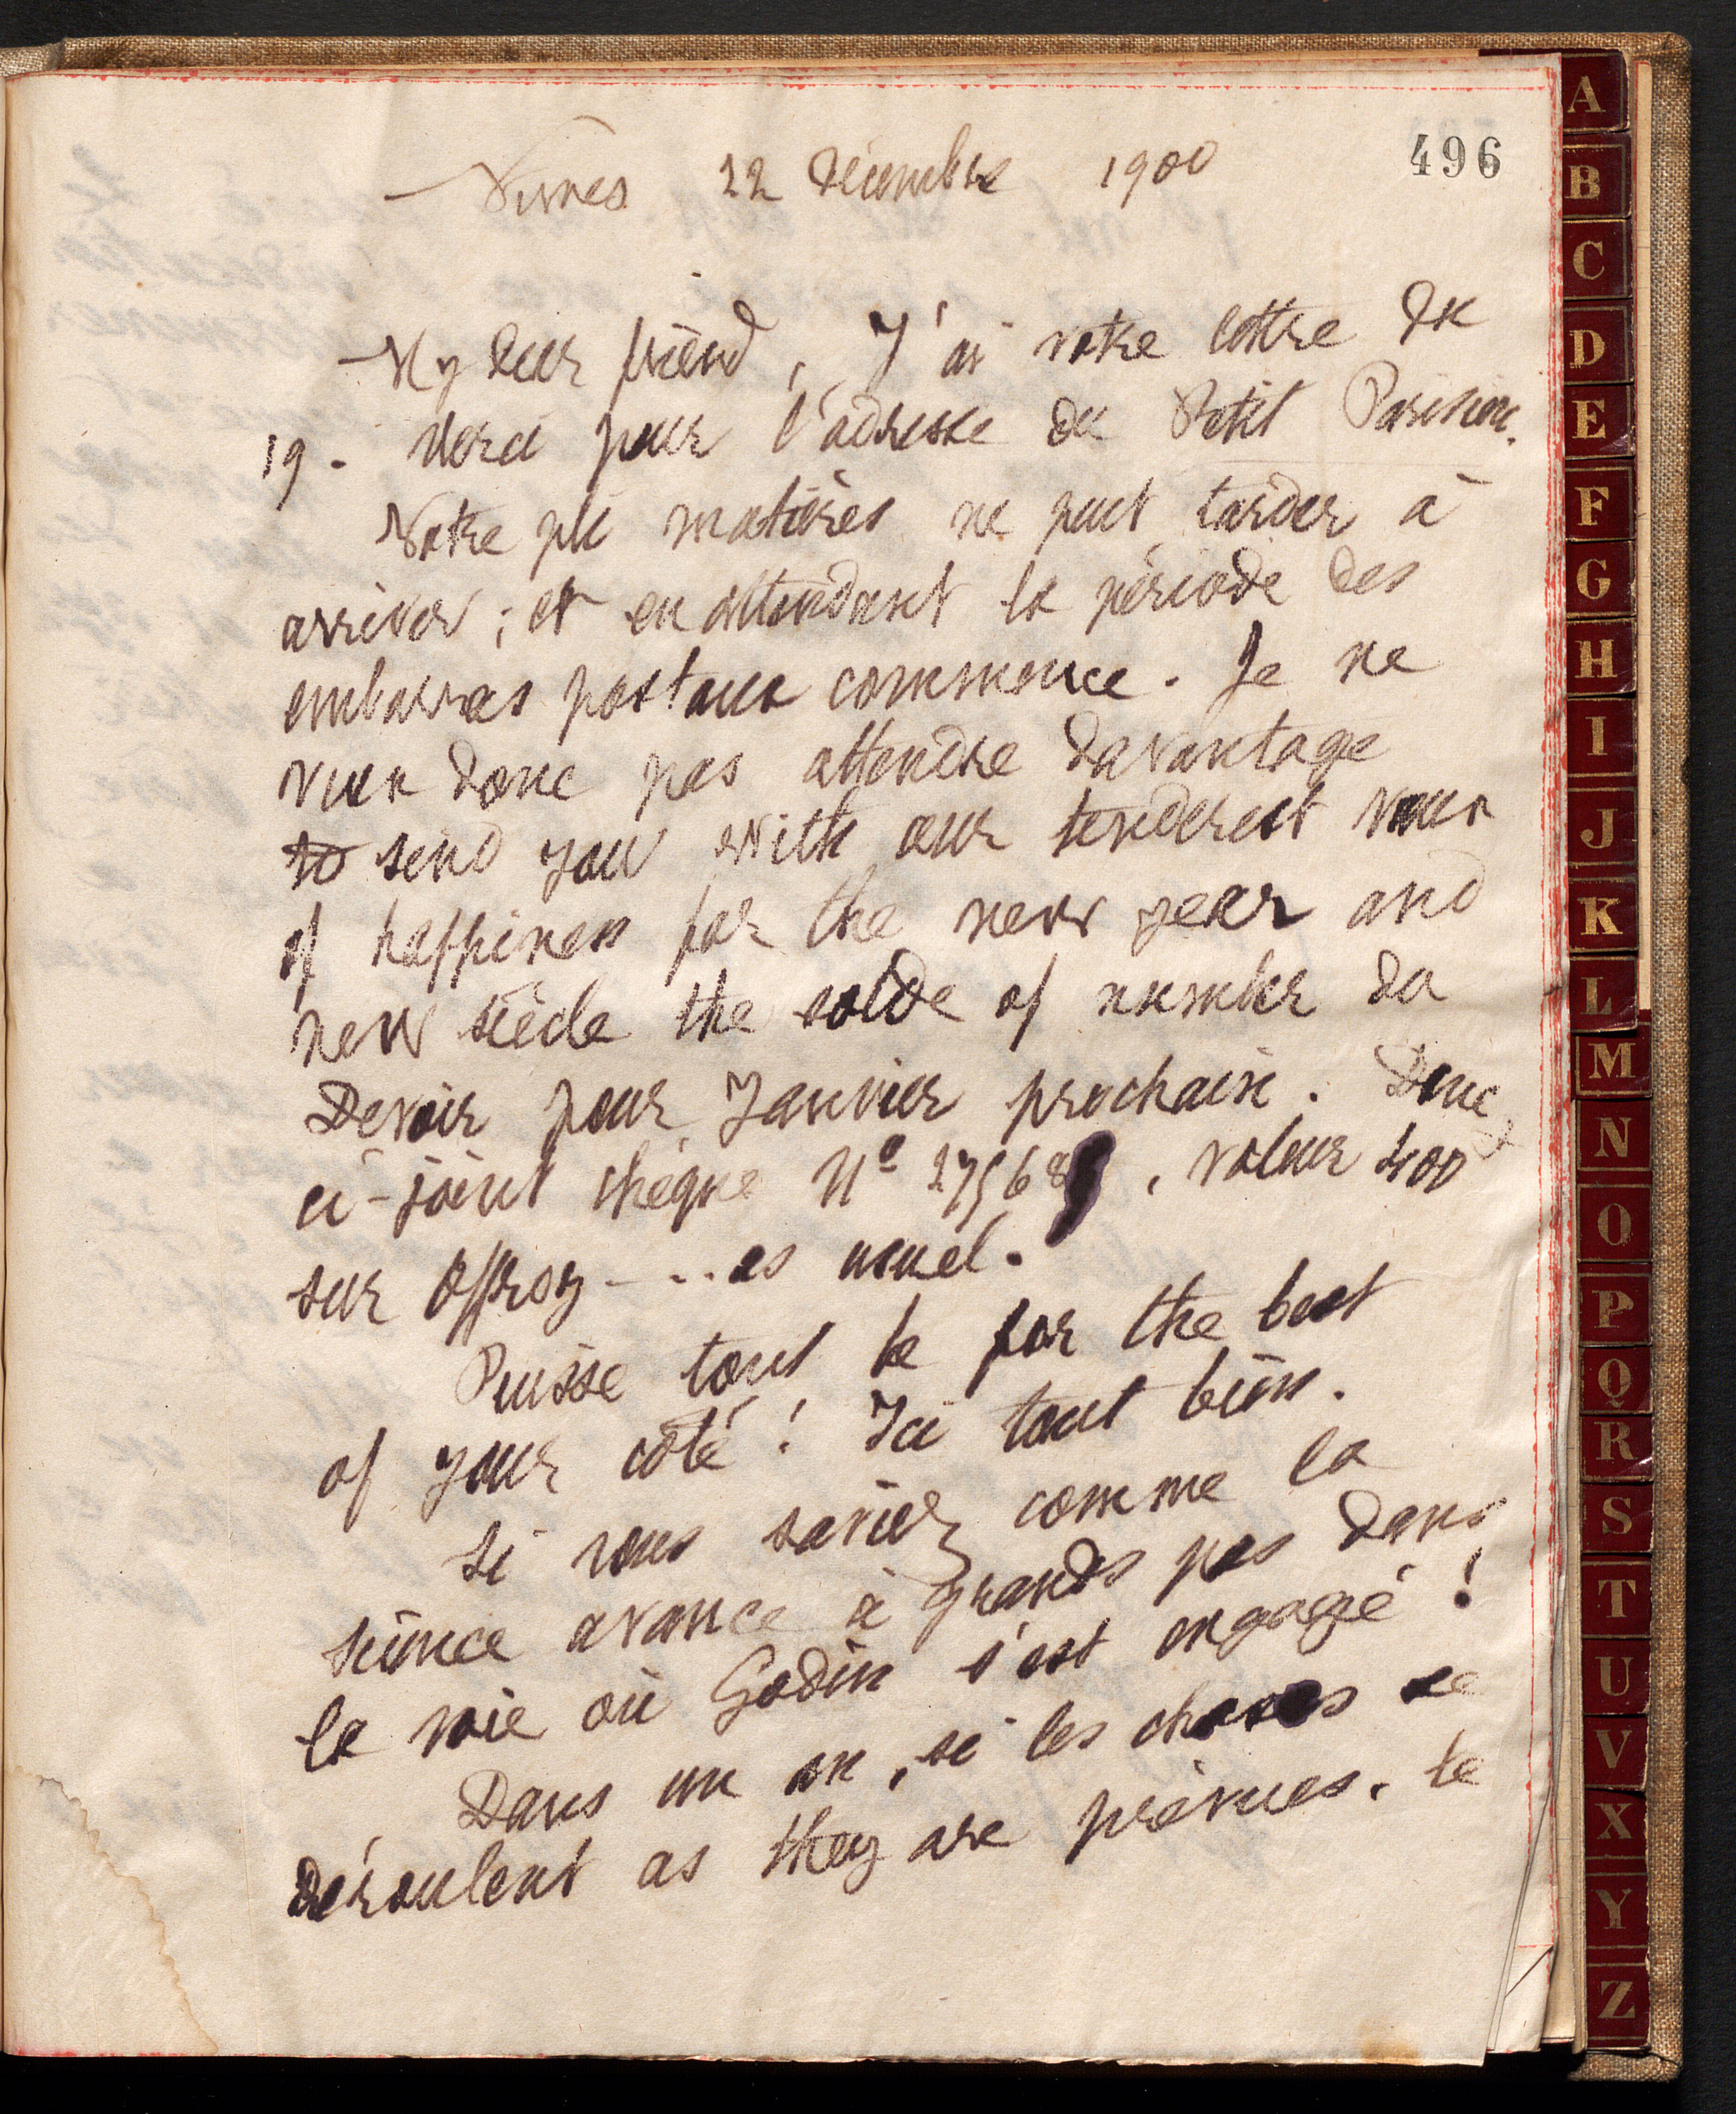 496
Nimes 22 décembre 1900
My dear friend, J'ai votre lettre du
19. Merci pour l'adresse du Petit Parisien.
Votre pli matières ne peut tarder à
arriver ; et en attendant la période des
embarras postaux commence. Je ne
veux donc pas attendre davantage
to send you with our tenderest vœux
of happiness for the new year and
new siècle the solde of number du
Devoir pour Janvier prochain. Donc,
ci-joint chèque No 27568 , valeur 400
sur Offroy - ... as usuel.
Puisse tout be for the best
of your côté ! Ici tout bien.
Si vous saviez comme la
science avance à grands pas dans
la voie où Godin s'est engagé !
Dans un an, si les choses se
déroulent as they are prévues, le
A
B
C
D
E
F
G
H
I
J
K
L
M
N
O
P
Q
R
S
T
U
V
X
Y
Z